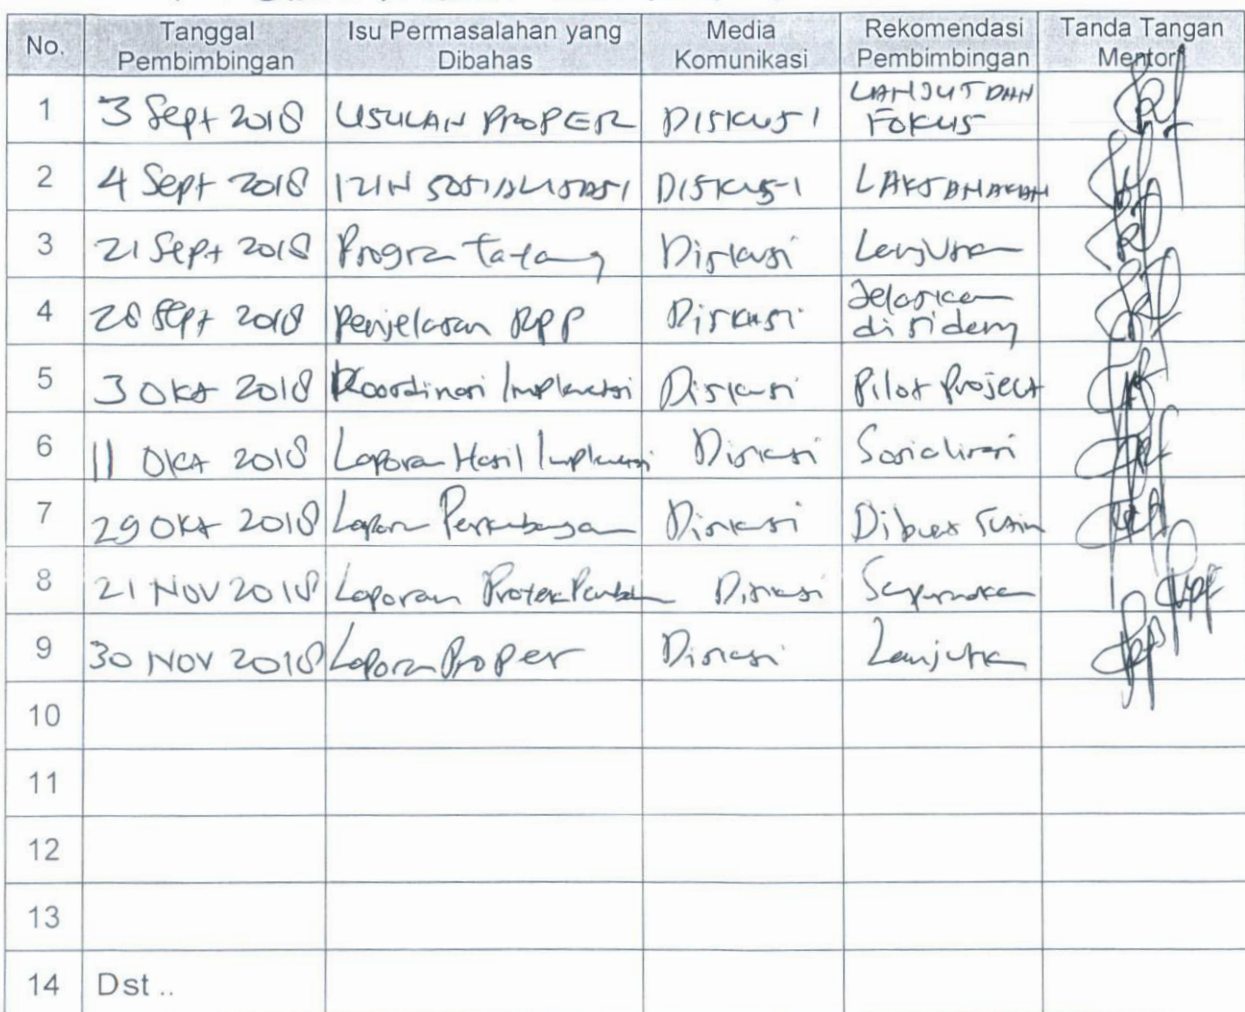 No. Tanggal Pembimbingan Isu Permasalahan yang Dibahas Media Komunikasi Rekomendasi Pembimbingan Tanda Tangan Mentor
1 3 Sept 2018 USULAN PROPER DISKUSI LANJUT DAN FOKUS
2 4 Sept 2018 IZIN SOSIALISASI DISKUSI LAKSANAKAN
3 21 Sept 2018 Diskusi Lanjutkan
4 28 Sept 2018 Penjelasan RPP Diskusi Jelaskan di sidang
5 3 Okt 2018 Koordinasi Implementasi Diskusi Pilot Project
6 11 Okt 2018 Laporan Hasil Implementasi Diskusi Sosialisasi
7 29 Okt 2018 Laporan Perkembangan Diskusi Dibuat
8 21 NOV 2018 Laporan Proyek Perubahan Diskusi Sempurnakan
9 30 NOV 2018 Laporan Proper Diskusi Lanjutkan
10
11
12
13
14 Dst ..